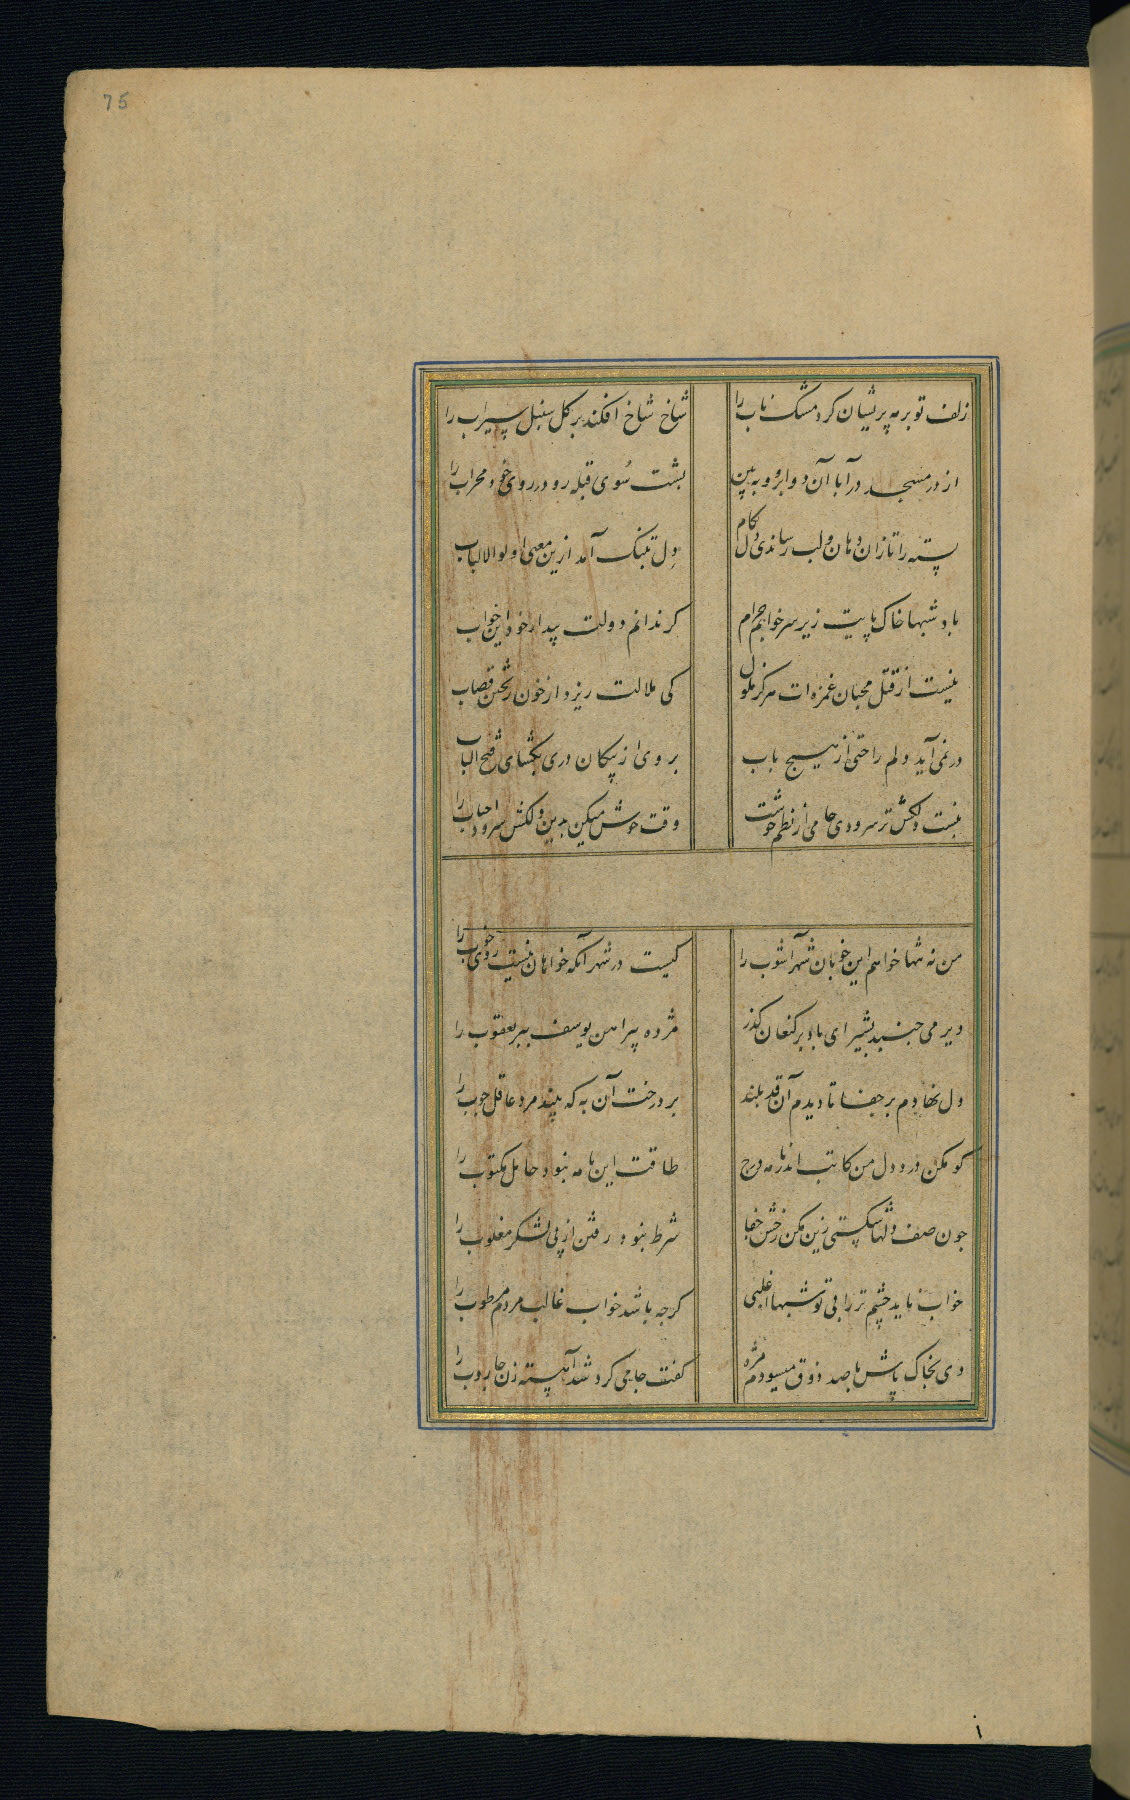 75
زلف تو بر مه پریشان کرد مشک ناب را شاخ شاخ افکند بر کل سنبل سیراب را
از در مسجد درآ با آن دو ابرو و به بین پشت سوی قبله رو در روی خود محراب را
پسته را تا زان دهان و لب رساندی کام دل دل بتنک آمد ازین معنی اولوالالباب
باد شبها خاک پایت زیر سر خوابم حرام کر ندانم دولت بیدار خود این خواب
نیست از قتل محبان غمزه ات هرکز ملول کی ملالت ریزد از خون ریختن قصاب
در نمی آید دلم راحتی از هیچ باب بر وی از پیکان دری بکشای فتح الباب
نیست دلکش تر سرودی جامی از نظم خوشت وقت خوش میکن بدین دلکش سرود احباب را
من نه تنها خواهم این خوبان شهرآشوب را کیست در شهر آنکه خواهان نیست روی خوب را
دیر می جنبد بشیر ای باد بر کنعان کذر مژده پیراهن یوسف ببر یعقوب را
دل نهادم بر جفا تا دیدم آن قد بلند بر درخت آن به که بیند مرد عاقل چوب را
کو مکن درد دل من کاتب اندر نامه درج طاقت این نامه نبود حامل مکتوب را
چون صف دلها شکستی زین مکن رخش جفا شرط نبود رفتن از پی لشکر مغلوب را
خواب ناید چشم تر را بی تو شبها اغلبی کرچه باشد خواب غالب مردم مرطوب را
دی بخاک پاش با صد ذوق میسودم مژه کفت جامی کرد شد آهسته زن جاروب را